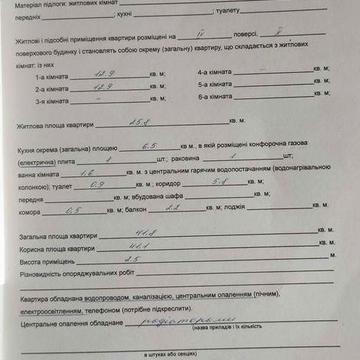 Матеріал підлоги: житлових кімнат
передніх , кухні ; туалету
Житлові і підсобні приміщення квартири розміщені на IV поверсі, X
поверхового будинку і становлять собою окрему (загальну) квартиру, що складається з житлових
кімнат: із них
1-а кімната 12.9 кв. м; 4-а кімната кв. м;
2-а кімната 12.9 кв. м; 5-а кімната кв. м;
3-я кімната – кв. м; 6-а кімната кв. м;
Житлова площа квартири 25.8 кв. м.
Кухня окрема (загальна) площею 6.5 кв. м., в якій розміщені конфорочна газова
(електрична) плита 1 шт.; раковина 1 шт;
ванна кімната 1.6 кв. м. з центральним гарячим водопостачанням (водонагрівальною
колонкою); туалет 0.9 кв. м.; коридор 5.1 кв. м;
передня кв. м; вбудована шафа кв. м;
комора 0.5 кв. м; балкон кв. м; лоджія кв. м.
Загальна площа квартири 41.8
Корисна площа квартири 41.1
Висота приміщень 2.5 м.
Різновидність опоряджувальних робіт
Квартира обладнана водопроводом, каналізацією, центральним опаленням (пічним),
електроосвітленням, телефоном (потрібне підкреслити).
Центральне опалення обладнане радіаторами
(назва приладів і їх кількість
в штуках або секціях)